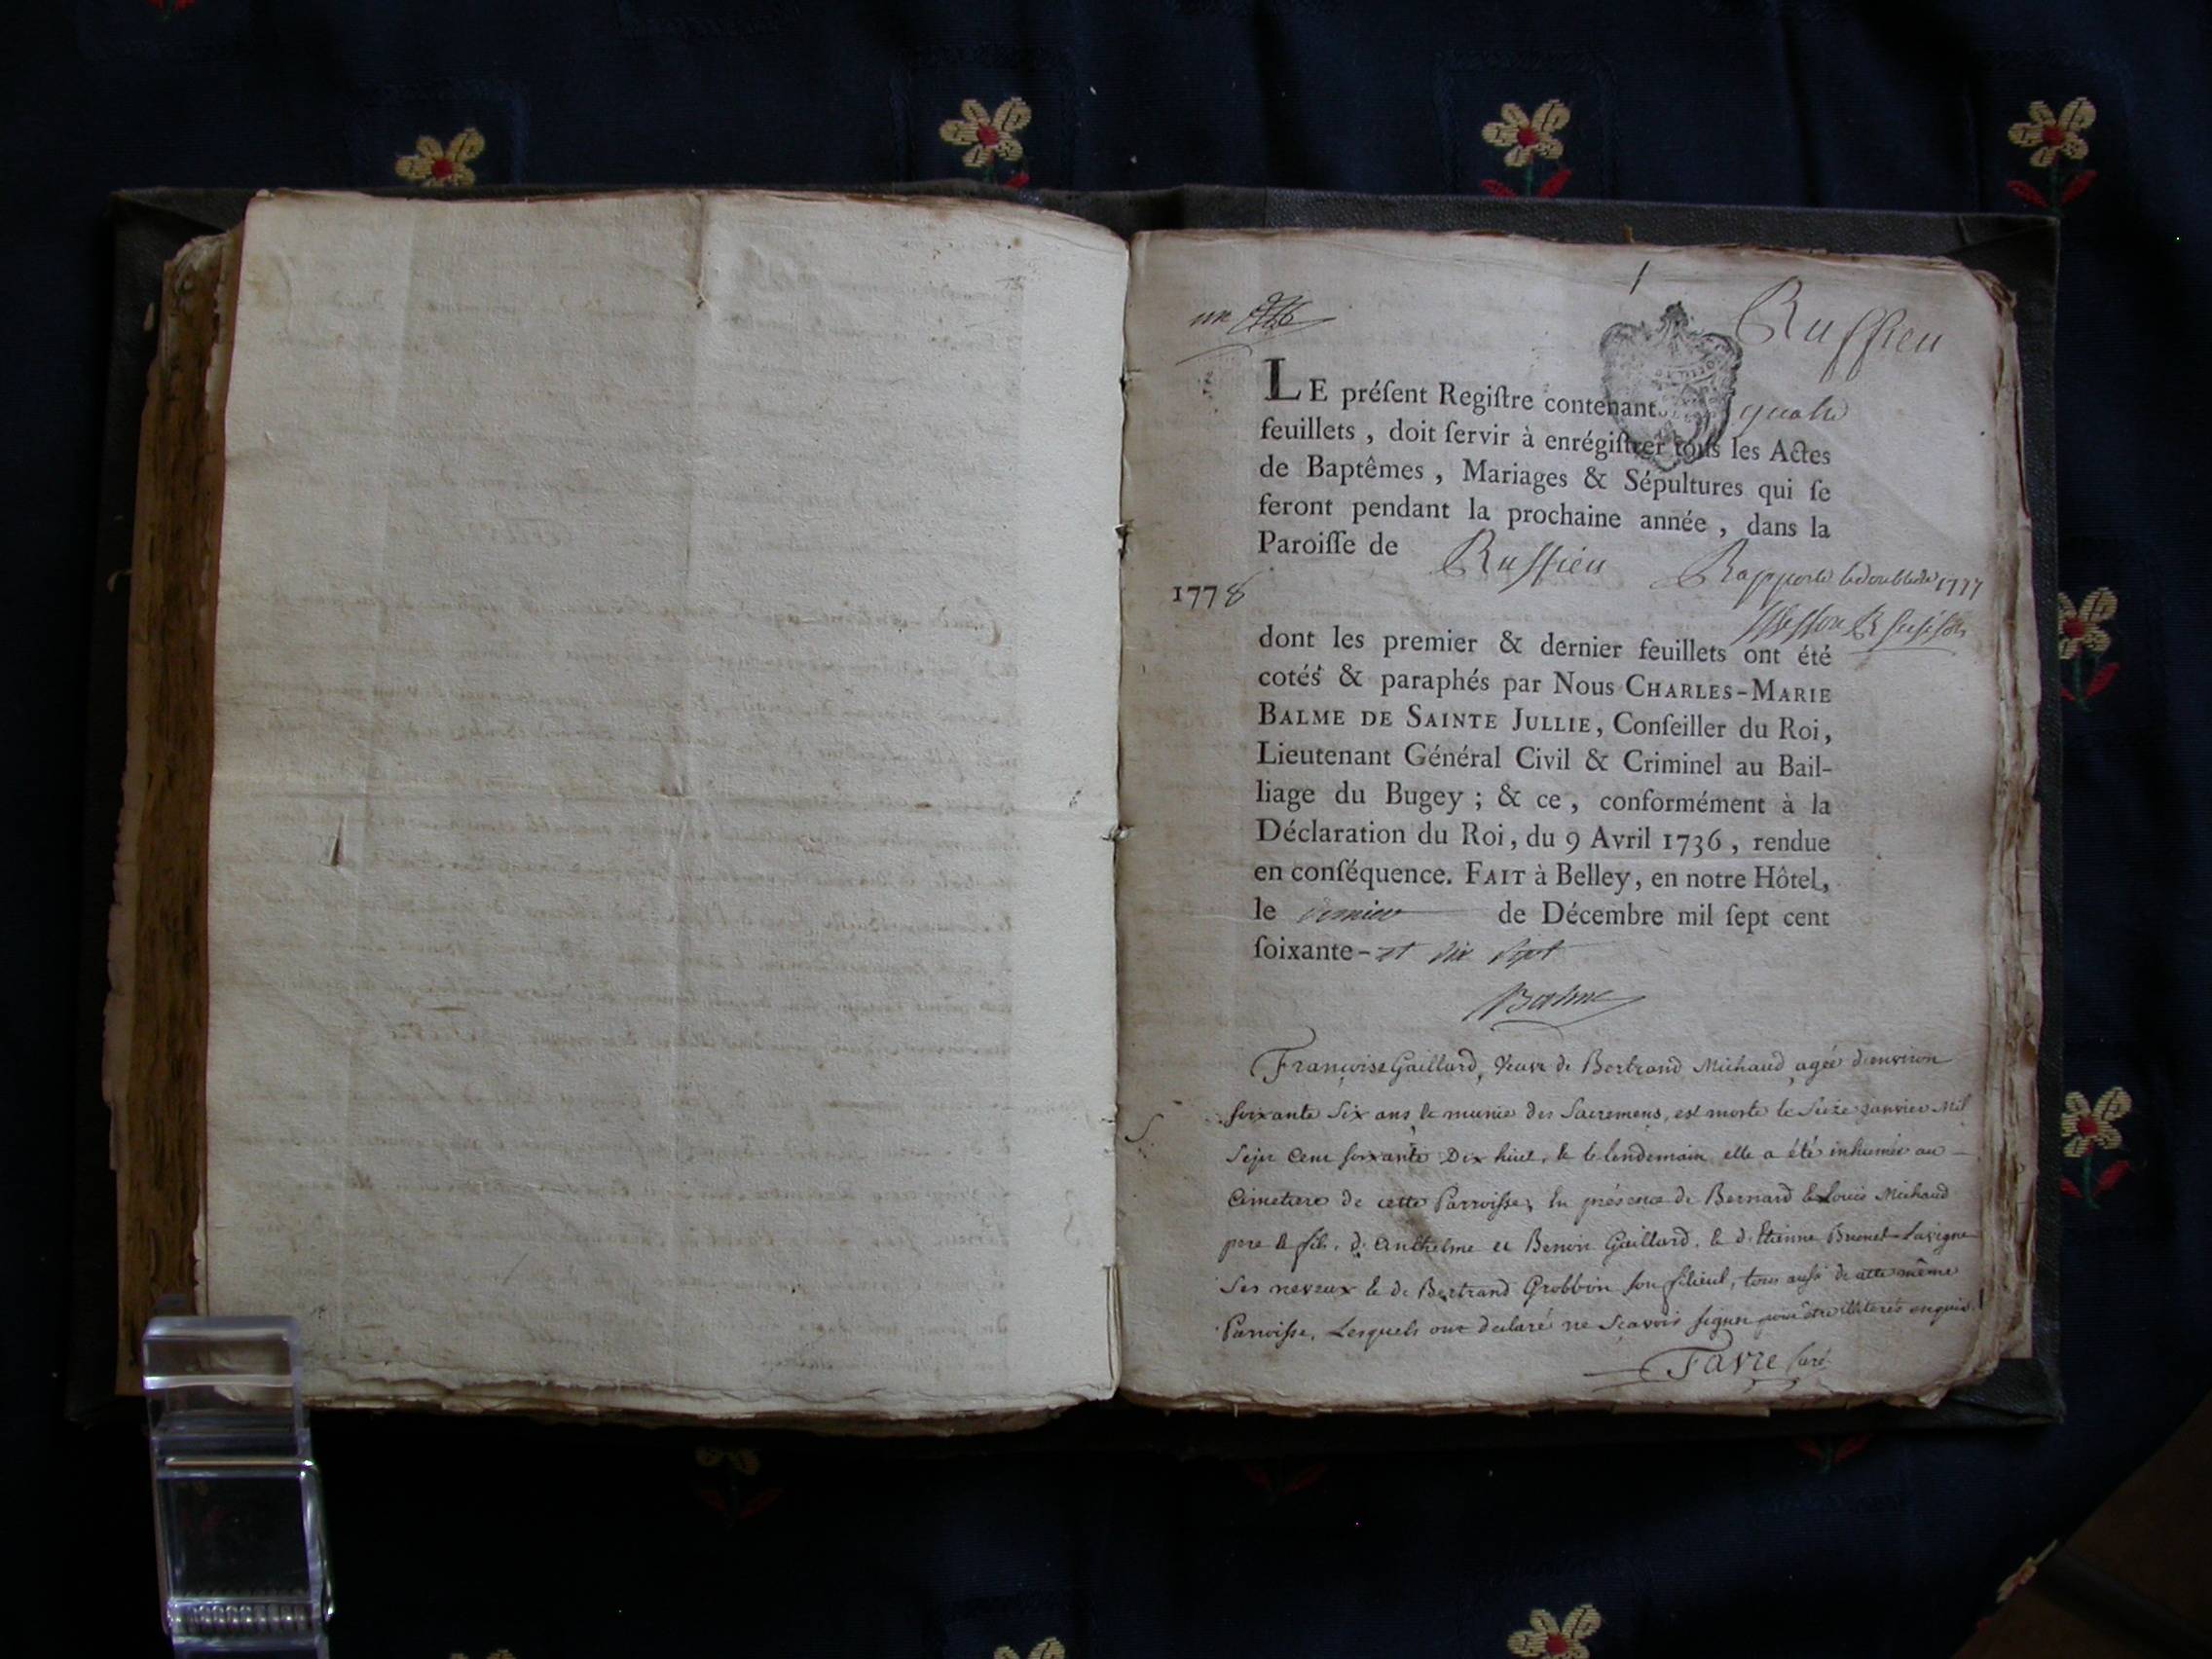 1
un
Ruffieu
LE préſent Regiſtre contenant quatre
feuillets , doit ſervir à enrégiſtrer tous les Actes
de Baptêmes , Mariages & Sépultures qui ſe
feront pendant la prochaine année , dans la
Paroiſſe de Ruffieu Rapporté le double de 1777
1778
dont les premier & dernier feuillets ont été
cotés & paraphés par Nous CHARLES-MARIE
BALME DE SAINTE JULLIE, Conſeiller du Roi,
Lieutenant Général Civil & Criminel au Bail-
liage du Bugey ; & ce , conformément à la
Déclaration du Roi, du 9 Avril 1736 , rendue
en conſéquence. FAIT à Belley, en notre Hôtel,
le dernier de Décembre mil ſept cent
ſoixante- et dix sept
Balme
Françoise Gaillard, veuve de Bertrand Michaud agée d'environ
soixante six ans & munie des Sacremens, est morte le seize janvier mil
Sept Cent soixante Dix huit, & le lendemain elle a été inhumée au
Cimetiere de cette Parroisse, En présence de Bernard & Louis Michaud
pere & fils, d'Anthelme et Benoit Gaillard, & d'Etienne Brunet-Lavigne
Ses neveux & de Bertrand Grobbon son filieul, tous aussi de cette même
Parroisse, Lesquels ont declaré ne Scavoir signer pour être illiterés enquis.
Favre Curé